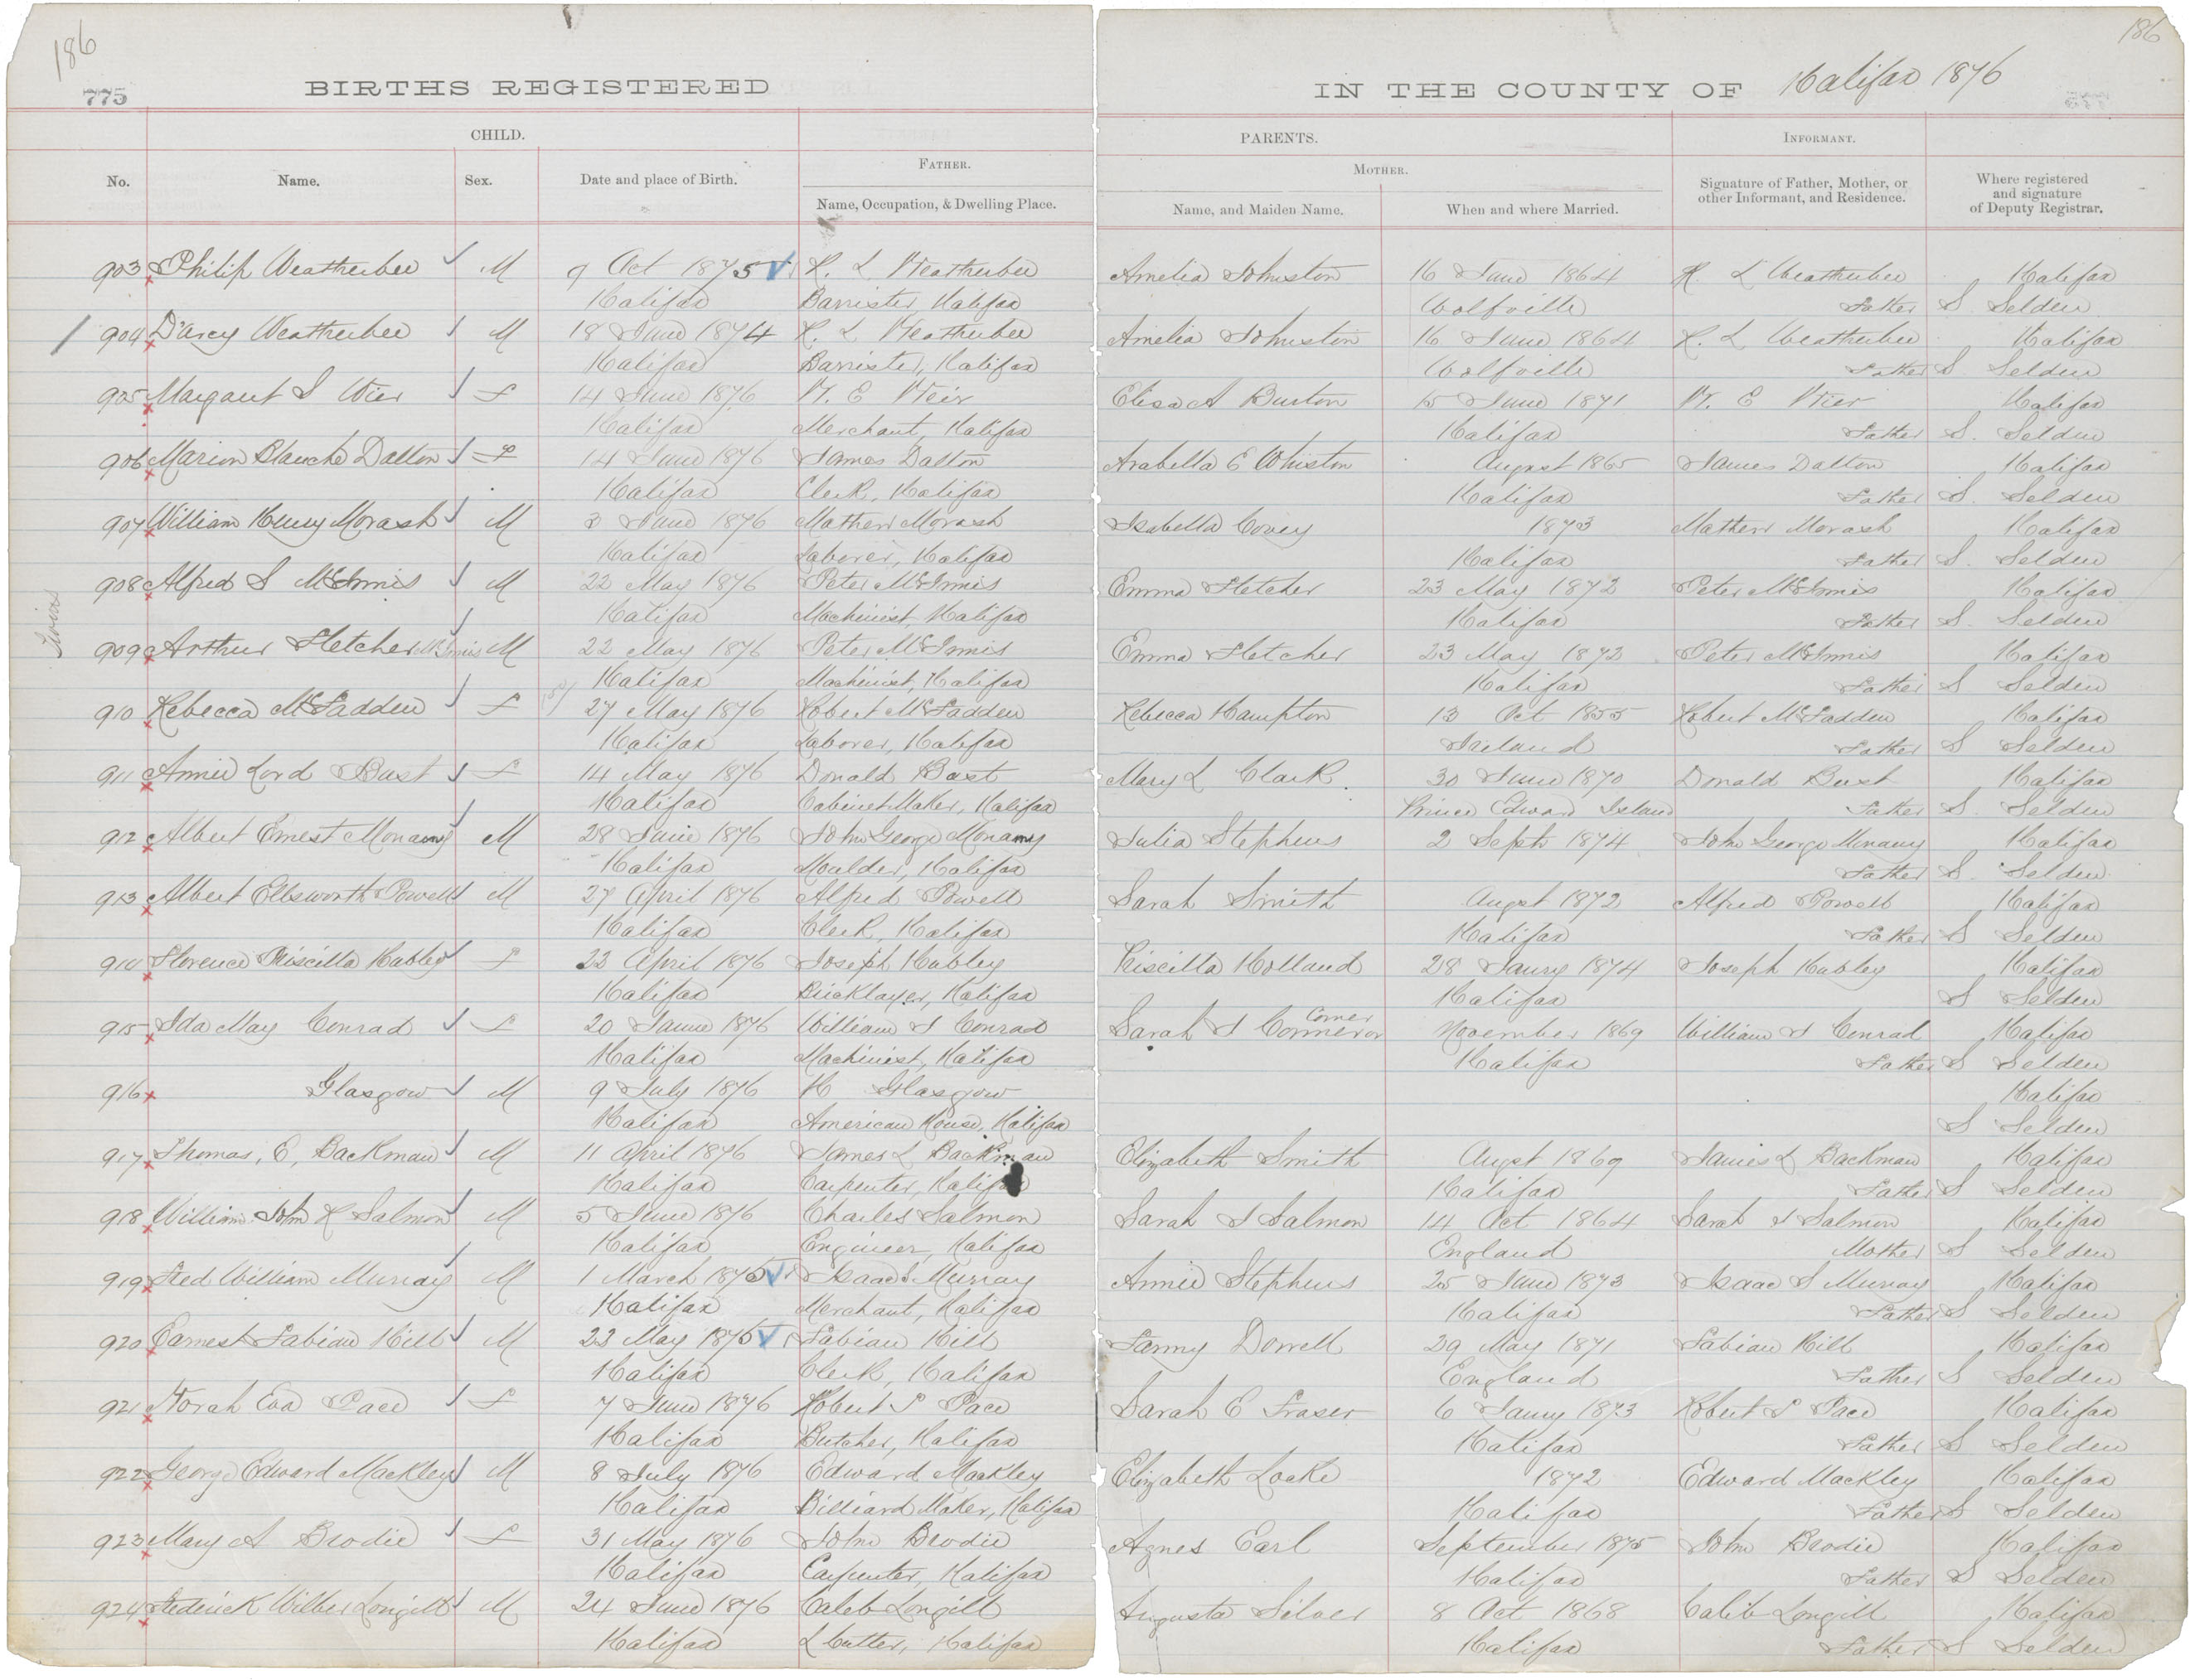 186
186
775
BIRTHS REGISTERED IN THE COUNTY OF Halifax 1876
CHILD. PARENTS. INFORMANT.
FATHER. MOTHER.
No. Name. Sex. Date and place of Birth. Name, Occupation, & Dwelling Place. Name, and Maiden Name. When and where Married. Signature of Father, Mother, or other Informant, and Residence. Where registered and signature of Deputy Registrar.
903 Philip Weatherbee M 9 Oct 1875 R. L Weatherbee Amelia Johnston 16 June 1864 R. L Weatherbee Halifax
Halifax Barrister Halifax Wolfville Father S Selden
904 D'arcy Weatherbee M 18 June 1874 R. L Weatherbee Amelia Johnston 16 June 1864 R. L Weatherbee Halifax
Halifax Barrister, Halifax Wolfville Father S. Selden
905 Margaret S Wier F 14 June 1876 W. E Weir Eliza A Burton 15 June 1871 W. E Wier Halifax
Halifax Merchant, Halifax Halifax Father S. Selden
906 Marion Blanche Dalton F 14 June 1876 James Dalton Arabella E Whiston August 1865 James Dalton Halifax
Halifax Clerk, Halifax Halifax Father S. Selden
907 William Henry Morash M 3 June 1876 Mathew Morash Isabella Covey 1873 Mathew Morash Halifax
Halifax Laborer, Halifax Halifax Father S. Selden
Twins
908 Alfred S McInnis M 22 May 1876 Peter McInnis Emma Fletcher 23 May 1872 Peter McInnis Halifax
Halifax Machinist, Halifax Halifax Father S. Selden
909 Arthur Fletcher McInnis M 22 May 1876 Peter McInnis Emma Fletcher 23 May 1872 Peter McInnis Halifax
Halifax Machinist, Halifax Halifax Father S Selden
910 Rebecca McFadden F 27 May 1876 Robert McFadden Rebecca Hampton 13 Oct 1855 Robert McFadden Halifax
Halifax Laborer, Halifax Ireland Father S Selden
911 Annie Lord Bust F 14 May 1876 Donald Bust Mary L Clark. 30 June 1870 Donald Bust Halifax
Halifax Cabinet Maker, Halifax Prince Edward Island Father S. Selden
912 Albert Ernest Monamy M 28 June 1876 John George Monamy Julia Stephens 2 Sept 1874 John George Monamy Halifax
Halifax Moulder, Halifax Father S. Selden
913 Albert Ellsworth Powell M 27 April 1876 Alfred Powell Sarah Smith August 1872 Alfred Powell Halifax
Halifax Clerk, Halifax Halifax Father S Selden
914 Florence Priscilla Hubley F 22 April 1876 Joseph Hubley Priscilla Holland 28 Janry 1874 Joseph Hubley Halifax
Halifax Bricklayer, Halifax Halifax S Selden
915 Ida May Conrad F 20 1876 William J Conrad Sarah J Conner November 1869 William J Conrad Halifax
Halifax Machinist, Halifax Halifax Father S Selden
916 Glasgow M 9 July 1876 H Glasgow Halifax
Halifax American House, Halifax S Selden
917 Thomas, E, Backman M 11 April 1876 James L Backman Elizabeth Smith August 1869 James L Backman Halifax
Halifax Carpenter, Halifax Halifax Father S Selden
918 William John H Salmon M 5 June 1876 Charles Salmon Sarah J Salmon 14 Oct 1864 Sarah J Salmon Halifax
Halifax Engineer, Halifax England Mother S Selden
919 Fred William Murray M 1 March 1875 Isaac S Murray Annie Stephens 25 June 1873 Isaac S Murray Halifax
Halifax Merchant, Halifax Halifax Father S Selden
920 Earnest Fabian Hill M 22 May 1875 Fabian Hill Fanny Dorrell 29 May 1871 Fabian Hill Halifax
Halifax Clerk, Halifax England Father S Selden
921 Norah Eva Pace F 7 June 1876 Robert S Pace Sarah E Fraser 6 Janry 1873 Robert S Pace Halifax
Halifax Butcher, Halifax Halifax Father S Selden
922 George Edward Mackley M 8 July 1876 Edward Mackley Elizabeth Locke 1872 Edward Mackley Halifax
Halifax Billiard Maker, Halifax Halifax Father S Selden
923 Mary A Brodie F 31 May 1876 John Brodie Agnes Earl September 1875 John Brodie Halifax
Halifax Carpenter, Halifax Halifax Father S Selden
924 Frederick Wilber Longill M 24 June 1876 Caleb Longill Augusta Silver 8 Oct 1868 Calib Longill Halifax
Halifax L Cutter, Halifax Halifax Father S Selden